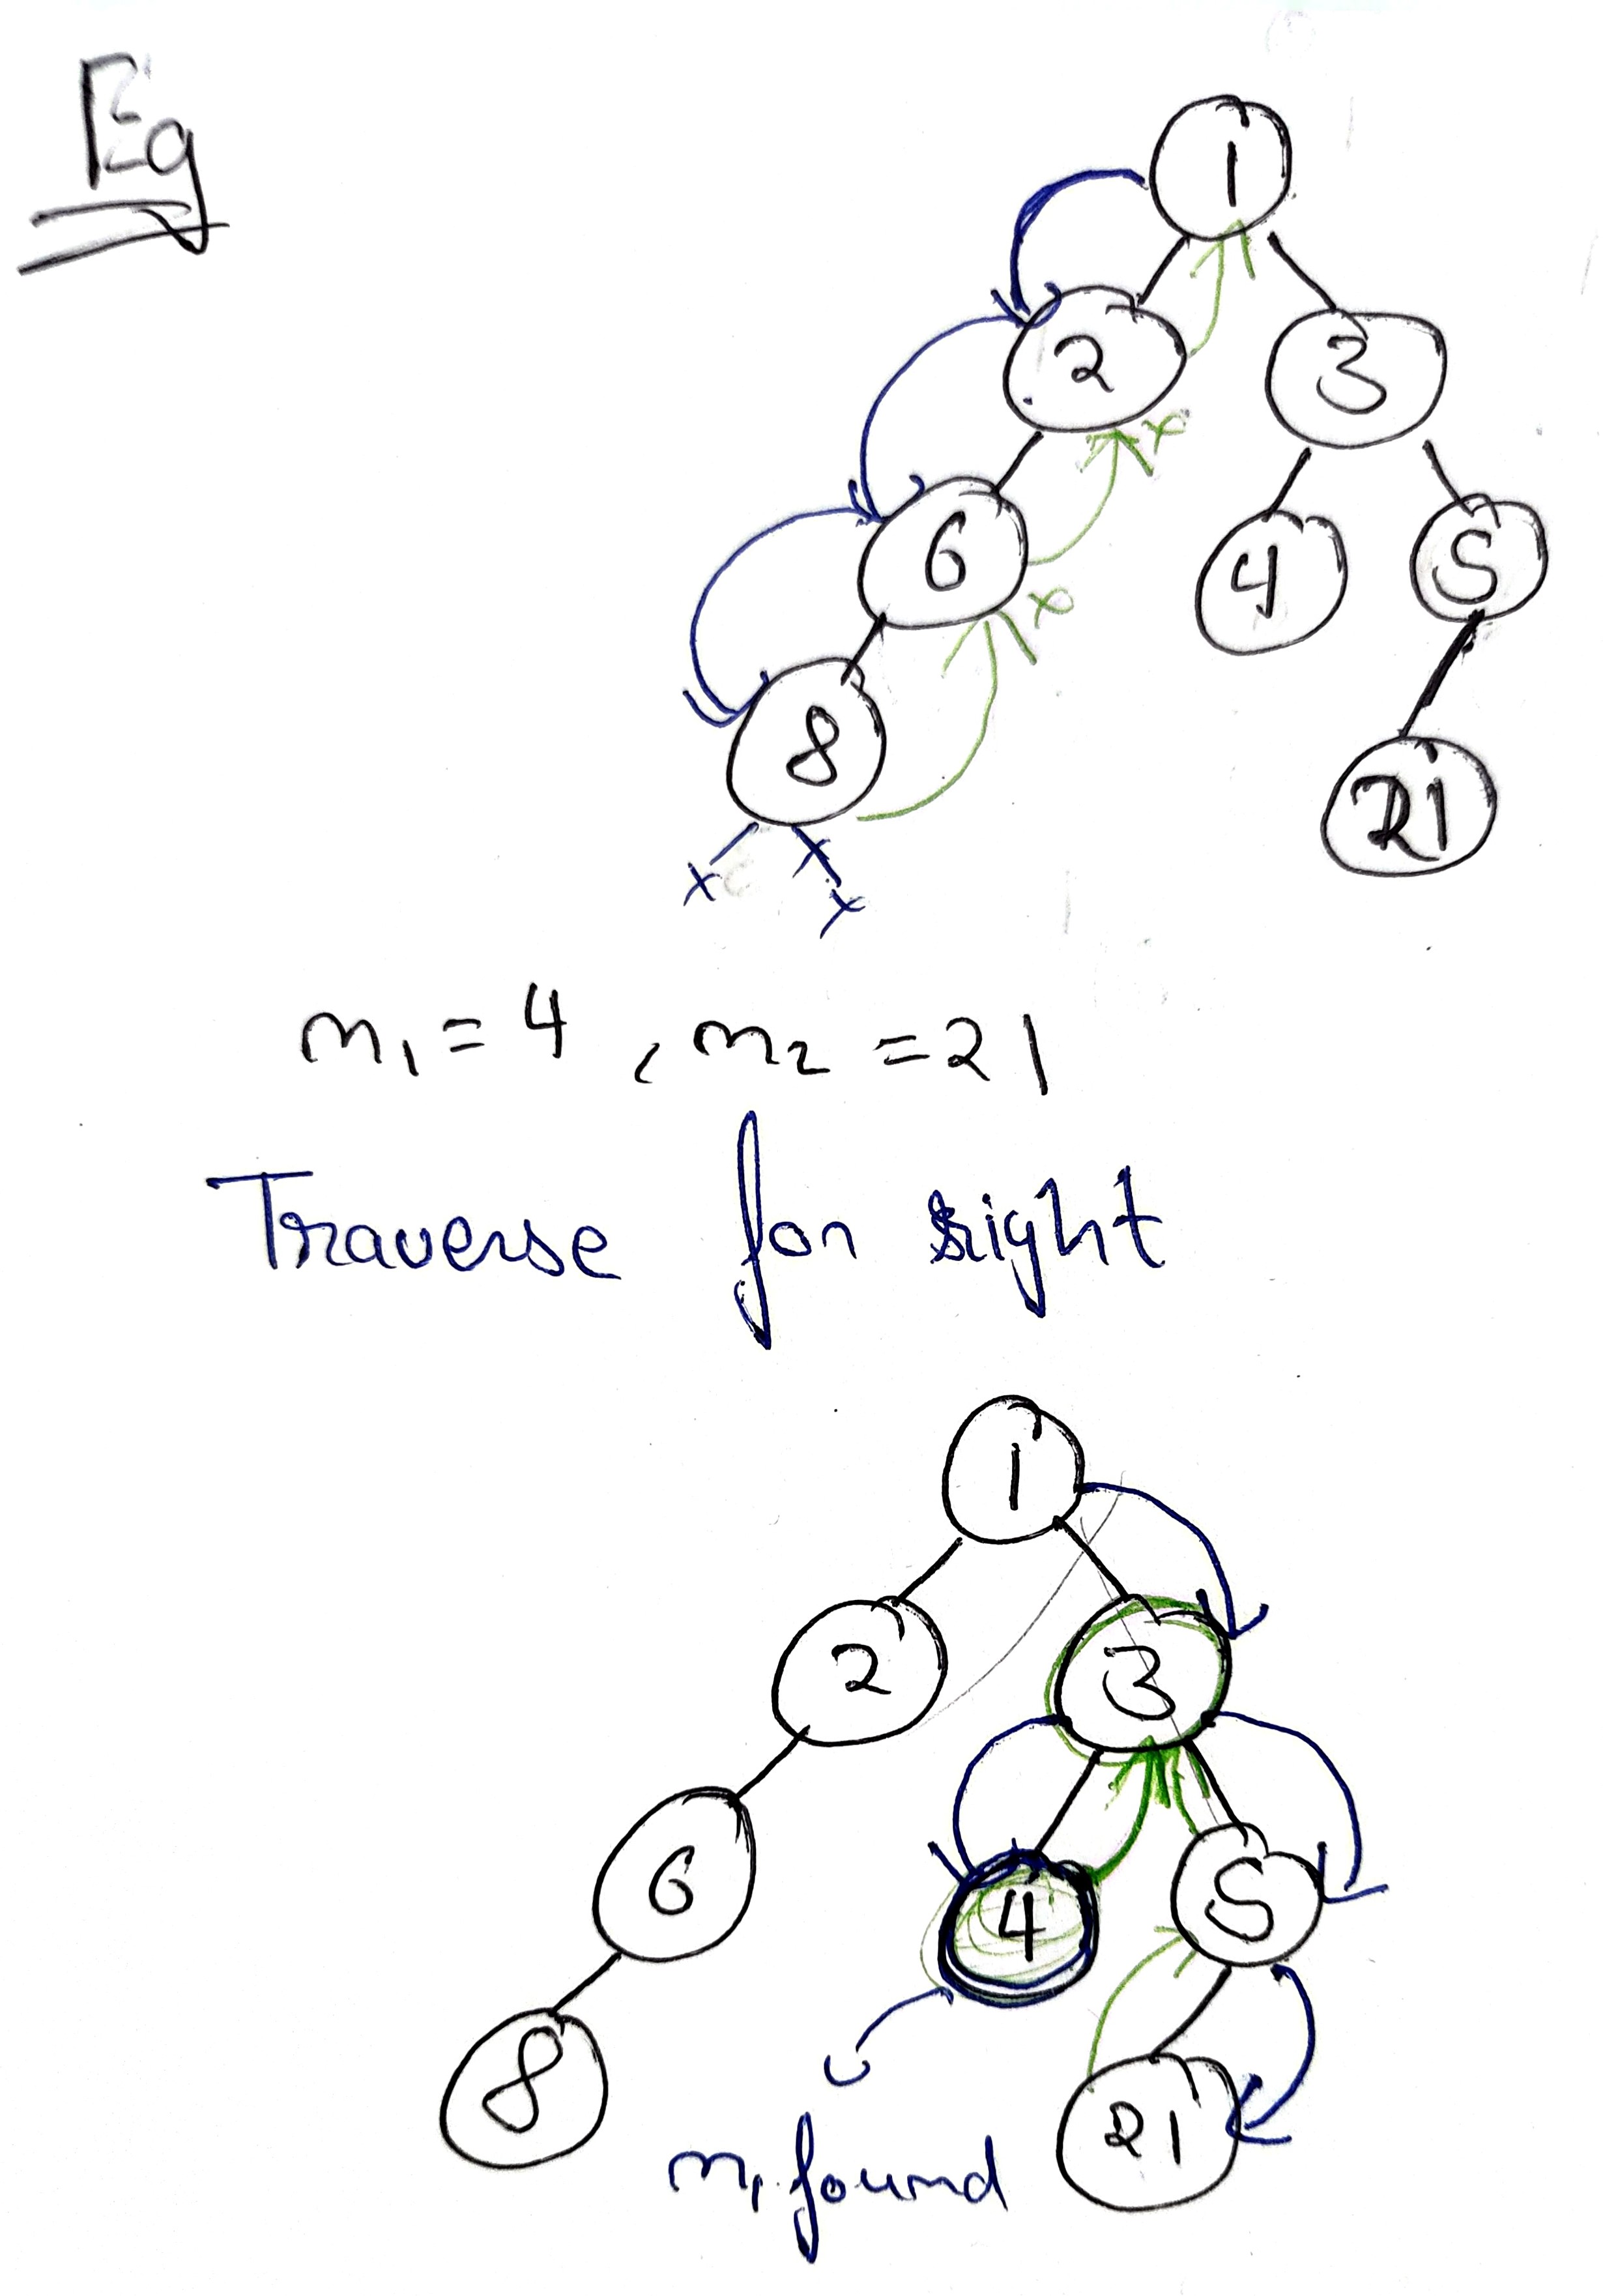 Eg
1
2 3
6 4 5
8 21
x x x
x x
n1 = 4 , n2 = 21
Traverse for right
1
2 3
6 4 5
8 21
n1 found